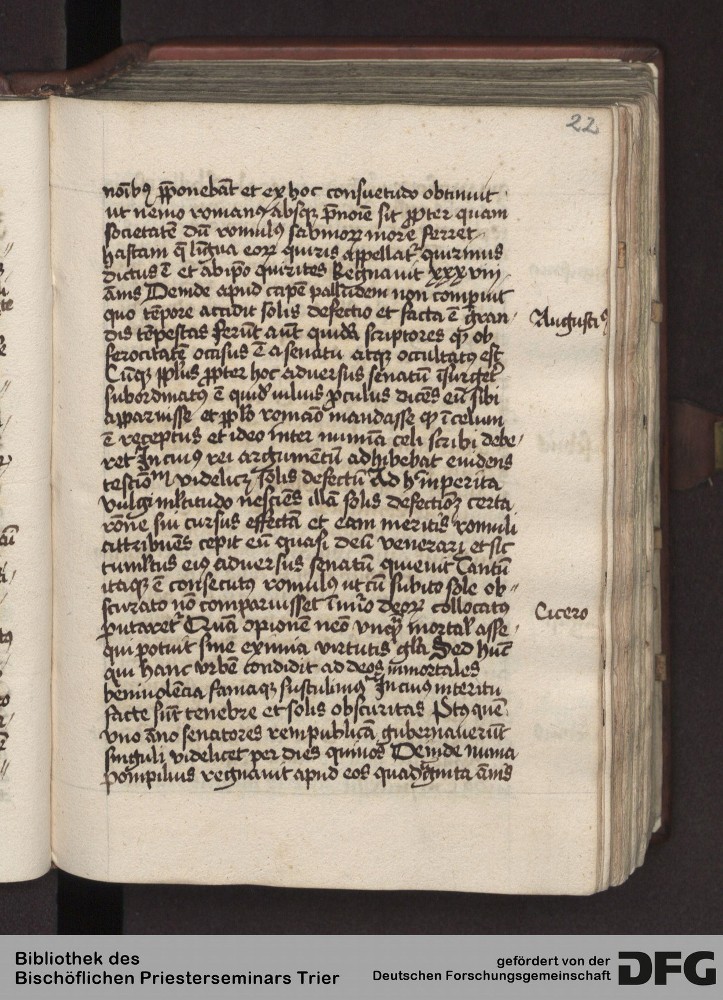 22
noībꝫ p̄ponebāt et ex hoc consuetudo obtinuit
ut nemo romanꝰ absqꝫ p̄noīe sit ꝓpter quam
societatē dū romulꝰ sabinoꝝ more ferret
hastam q̄ lingua eoꝝ quiris appellatʳ quirinus
dictus ē et ab ip̄o quirites Regnauit xxxviij
annis Deinde apud cap̄e palludem non comp̄uit
quo tēpore accidit solis defectio et facta ē gran-
dis tēpestas ferūt aūt quidā scriptores qꝫ ob
ferocitatē occisus ē a senatu atqꝫ occultatꝰ est
Cūqꝫ pplūs ꝓpter hoc adversus senatū īsurgeret
subordinatꝰ ē quidā iulius ꝓculus dicēs eū sibi
apparuisse et pplō romano mandasse qꝫ ī celum
ē receptus et ideo inter numina celi scribi debe-
ret In cuius rei argumētū adhibebat euidens
testīoīm videlicꝫ solis defectū Ad h imperita
vulgi mltitudo nesciēs illā solis defectionē certa
rōne sui cursus effectā et eam meritis romuli
attribuēs cepit eū quasi deū venerari et sic
tumltus eiꝰ adversus senatū quieuit Tantū
itaqꝫ ē consecutꝰ romulꝰ ut cū subito sole ob-
scurato nō comparuisset ī nūo deoꝝ collocatꝰ
putaretʳ Quā opionē nēo vnqꝫ mortaliū asse-
qui potuit sine eximia virtutis gla Sed hūc
qui hanc vrbē condidit ad deos inmortales
beniuolēcia famaqꝫ sustulimꝰ In cuiꝰ interitu
facte sūt tenebre et solis obscuritas Post quē
vno āno senatores rempublicā gubernauerūt
singuli videlicet per dies quinos Deinde numa
pompilius regnauit apud eos quadraginta ānis
Augustiꝰ
Cicero
Bibliothek des
Bischöflichen Priesterseminars Trier
gefördert von der
Deutschen Forschungsgemeinschaft
DFG